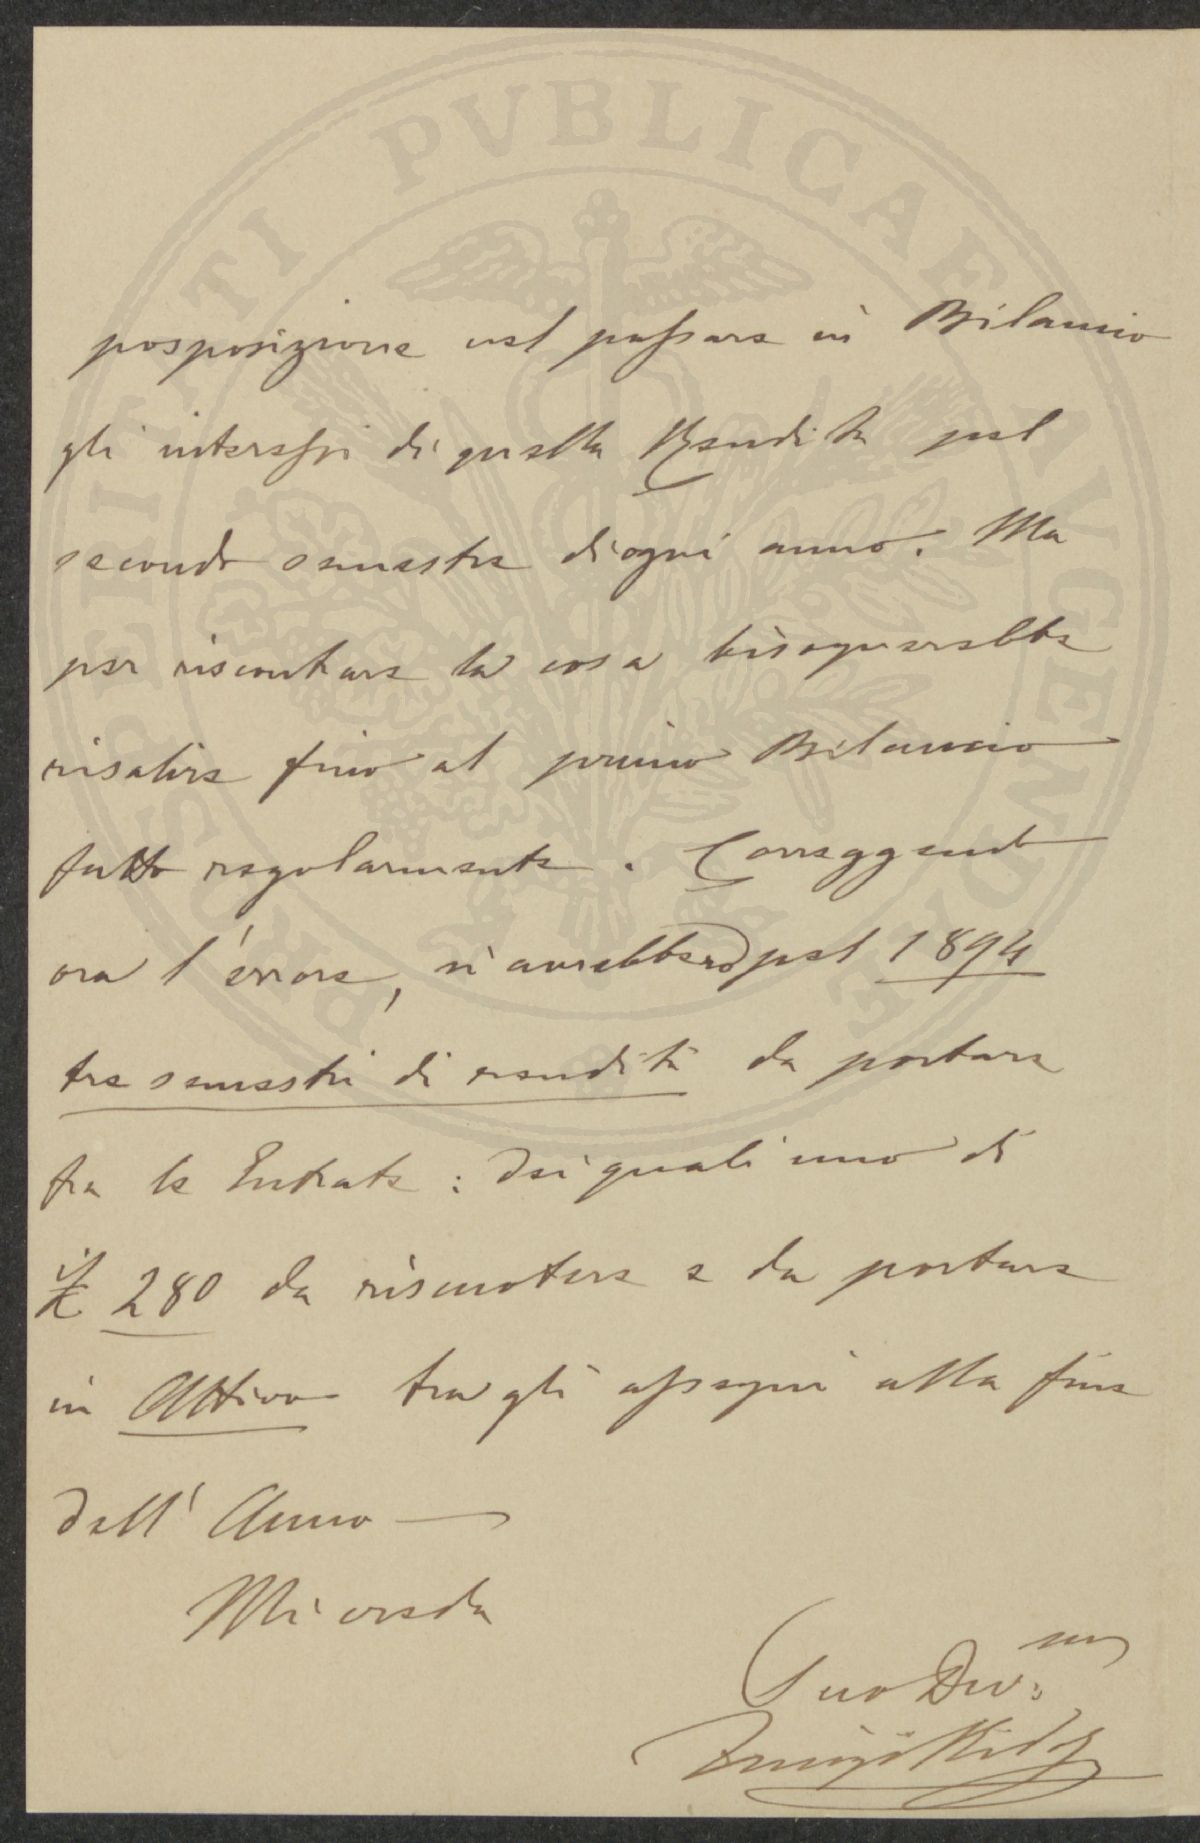 PROSPERITATI PVBLICAE AVGENDAE
posposizione nel passare in Bilancio
gli interessi di quella Rendita pel
secondo semestre di ogni anno. Ma
per riscontrare la cosa bisognerebbe
risalire fino al primo Bilancio
fatto regolarmente. Correggendo
ora l'errore, si avrebbero pel 1894
tre semestri di rendita da portare
fra le Entrate: dei quali uno di
£ 280 da riscuotere e da portare
in Attivo tra gli assegni alla fine
dell'Anno —
Mi creda
Suo Dev:mo